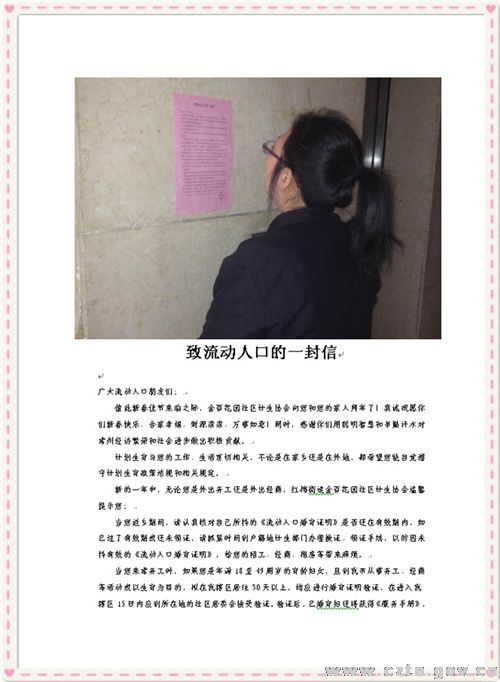 致流动人口的一封信
广大流动人口朋友们：
值此新春佳节来临之际，金百花园社区计生协会向您和您的家人拜年了！真诚祝愿你
们新春快乐、合家幸福、财源滚滚、万事如意！同时，感谢你们用聪明智慧和辛勤汗水对
常州经济繁荣和社会进步做出积极贡献。
计划生育与您的工作、生活密切相关，不论是在家乡还是在外地，都希望您能自觉遵
守计划生育政策法规和相关规定。
新的一年中，无论您是外出务工还是外出经商，红梅街道金百花园社区计生协会温馨
提示您：
当您返乡期间，请认真核对自己所持的《流动人口婚育证明》是否还在有效期内，如
已过了有效期或还未领证，请抓紧时间到户籍地计生部门办理换证、领证手续，以防因未
持有效的《流动人口婚育证明》，给您的招工、经商、租房等带来麻烦。
当您来常务工时，如果您是年满 18 至 49 周岁的育龄妇女，且到我市从事务工、经商
等活动或以生育为目的，拟在我辖区居住 30 天以上，均应进行婚育证明验证，在进入我
辖区 15 日内应到所在地的社区居委会接受验证。验证后，已婚育妇还将获得《服务手册》，
www.cztn.gov.cn